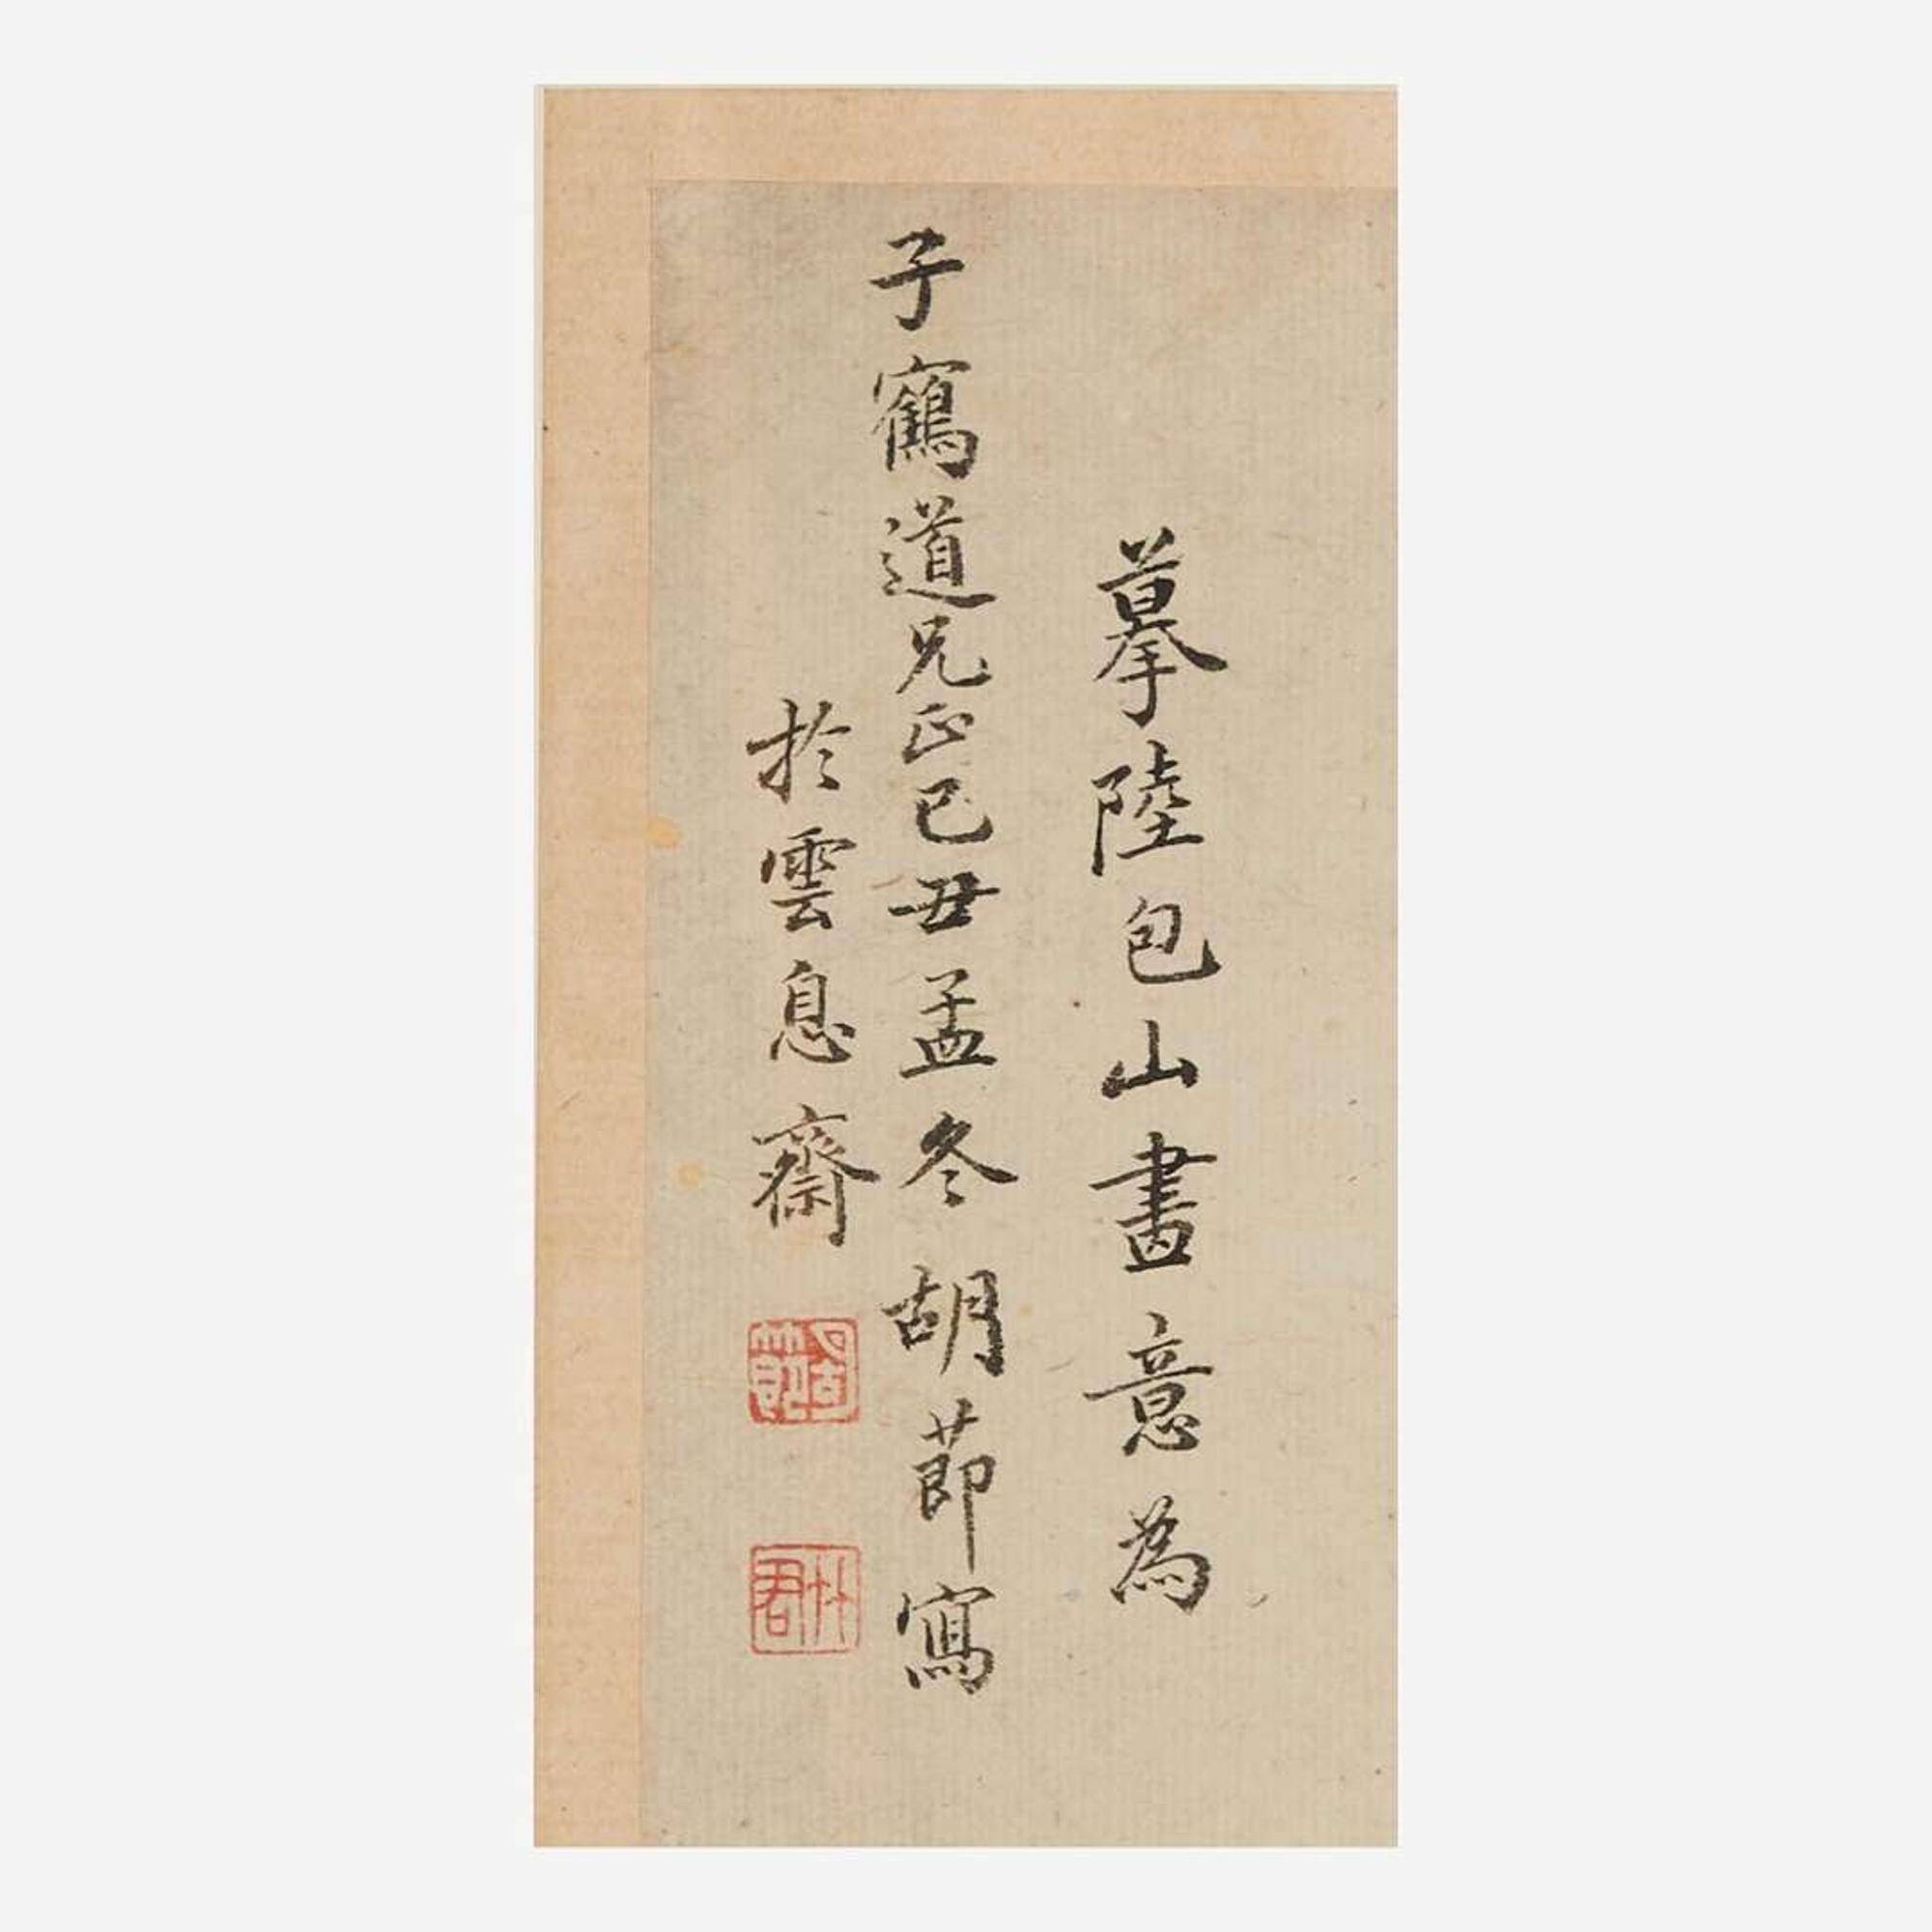 摹陸包山畫意為
子鶴道兄正己丑孟冬胡莭寫
於雲息齋
胡節
竹君